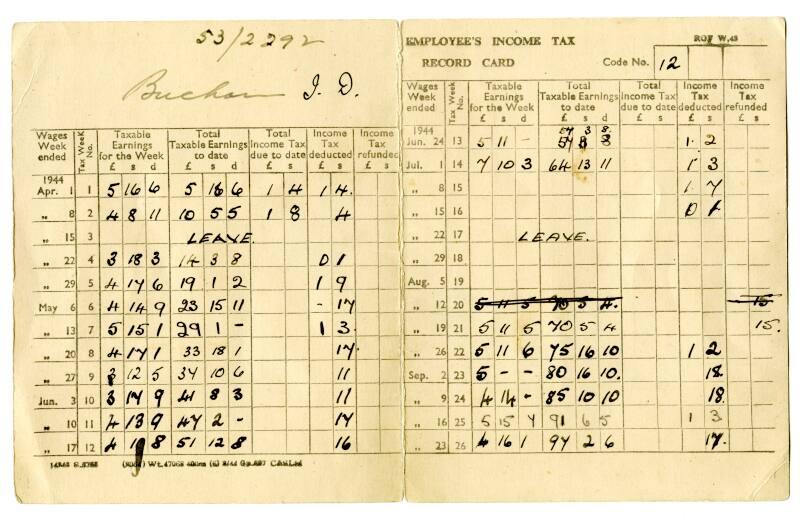 53/2292
Buchan J. D.
Wages Week ended Tax Week No. Taxable Earnings for the Week £ s d Total Taxable Earnings to date £ s d Total Income Tax due to date £ s Income Tax deducted £ s Income Tax refunded £ s
1944
Apr. 1 1 5 16 6 5 16 6 1 4 1 4.
„ 8 2 4 8 11 10 5 5 1 8 4
„ 15 3 LEAVE.
„ 22 4 3 18 3 14 3 8 0 1
„ 29 5 4 17 6 19 1 2 1 9
May 6 6 4 14 9 23 15 11 - 17
„ 13 7 5 15 1 29 1 - 1 3.
„ 20 8 4 17 1 33 18 1 17.
„ 27 9 3 12 5 37 10 6 11
Jun. 3 10 3 17 9 41 8 3 11
„ 10 11 4 13 9 47 2 - 17
„ 17 12 4 1 8 51 12 8 16
EMPLOYEE'S INCOME TAX ROF W.48
RECORD CARD Code No. 12
Wages Week ended Tax Week No. Taxable Earnings for the Week £ s d Total Taxable Earnings to date £ s d Total Income Tax due to date £ s Income Tax deducted £ s Income Tax refunded £ s
1944 57 3 8.
Jun. 24 13 5 11 - 57 3 8 1 2
Jul. 1 14 7 10 3 64 13 11 1 3
„ 8 15 1 7
„ 15 16 0 1
„ 22 17 LEAVE.
„ 29 18
Aug. 5 19
„ 12 20 5 11 5 70 5 4. 15
„ 19 21 5 11 5 70 5 4 15.
„ 26 22 5 11 6 75 16 10 1 2
Sep. 2 23 5 - - 80 16 10. 18.
„ 9 24 4 14 - 85 10 10 18.
„ 16 25 5 15 7 91 6 5 1 3
„ 23 26 4 16 1 97 2 6 17.